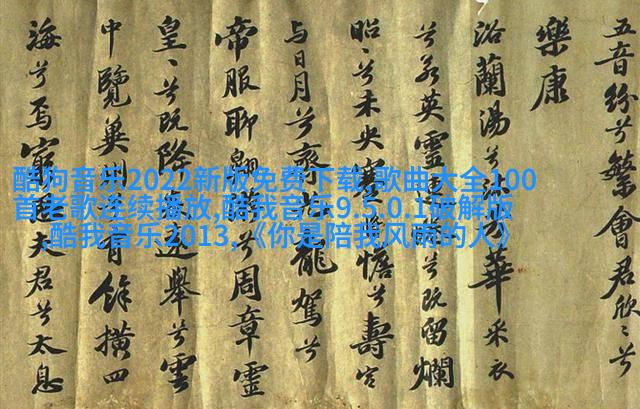 五音紛兮繁會君欣〻兮
樂康
浴蘭湯兮華采衣
兮若英靈兮既留爛
昭〻兮未央憺兮壽宮
与日月兮齊龍駕兮
帝服聊翱兮周章靈
皇〻兮既降遠舉兮雲
中覽冀州有餘橫四
海兮焉窮夫君兮太息
酷狗音乐2022新版免费下载,歌曲大全100
首老歌连续播放,酷我音乐9.5.0.1破解版
,酷我音乐2013,《你是陪我风雨的人》